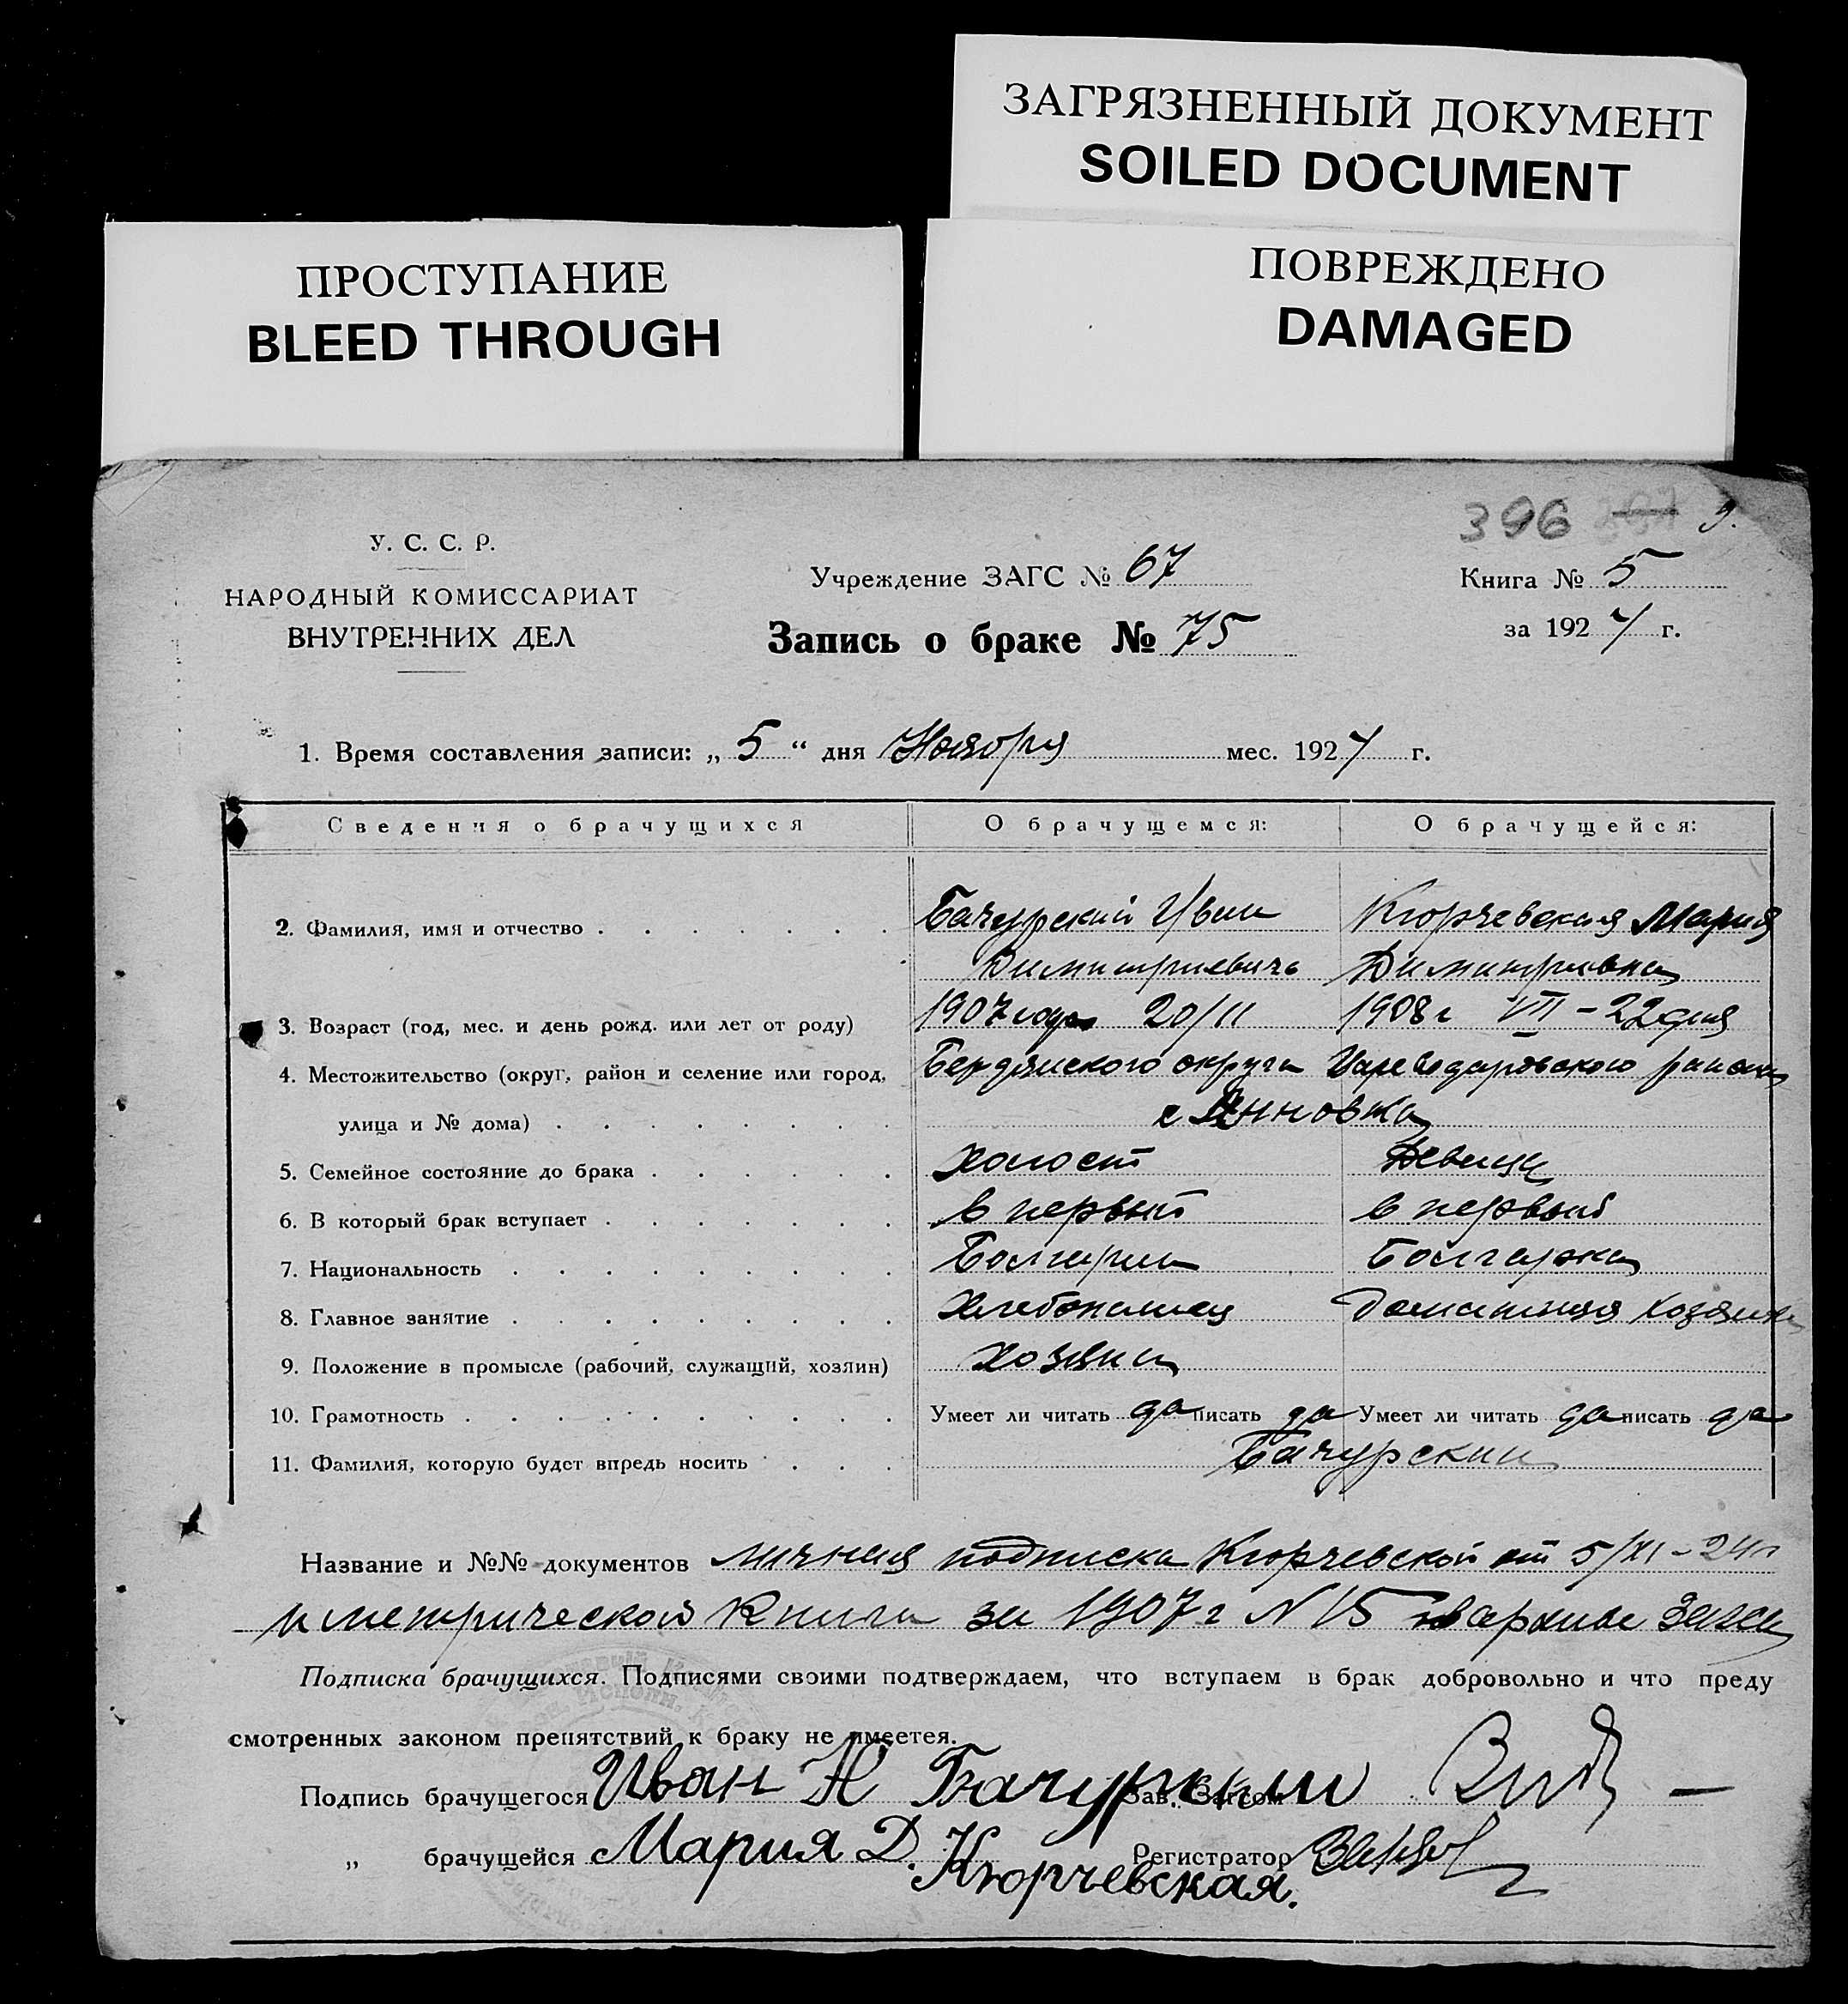 ЗАГРЯЗНЕННЫЙ ДОКУМЕНТ
SOILED DOCUMENT
ПРОСТУПАНИЕ
BLEED THROUGH
ПОВРЕЖДЕНО
DAMAGED
396
У. С. С. Р.
НАРОДНЫЙ КОМИССАРИАТ
ВНУТРЕННИХ ДЕЛ
Учреждение ЗАГС № 67
Запись о браке № 75
Книга № 5
за 1924 г.
1. Время составления записи: „ 5 “ дня Ноября мес. 1924 г.
Сведения о брачущихся О брачущемся: О брачущейся:
2. Фамилия, имя и отчество Бачурский Иван Кюрчевская Мария
Димитриевичь Димитриевна
3. Возраст (год, мес. и день рожд. или лет от роду) 1907 года 20/II 1908 г VII – 22 дня
4. Местожительство (округ, район и селение или город, Бердянского округа Цареводаровского района
улица и № дома) с Анновка
5. Семейное состояние до брака холост Девица
6. В который брак вступает в первый в первый
7. Национальность Болгарин Болгарка
8. Главное занятие Хлебопашец Домашняя хозяйка
9. Положение в промысле (рабочий, служащий, хозяин) хозяин
10. Грамотность Умеет ли читать да писать да Умеет ли читать да писать да
11. Фамилия, которую будет впредь носить Бачурский
Название и №№ документов личная подписка Кюрчевской от 5/XI – 24 г
и метрической Книги за 1907 г N 15 архиве Загса
Подписка брачущихся. Подписями своими подтверждаем, что вступаем в брак добровольно и что преду
смотренных законом препятствий к браку не имеетея.
Подпись брачущегося Иван Бачурский Зав. Загсом
„ брачущейся Мария Д. Кюрчевская. Регистратор